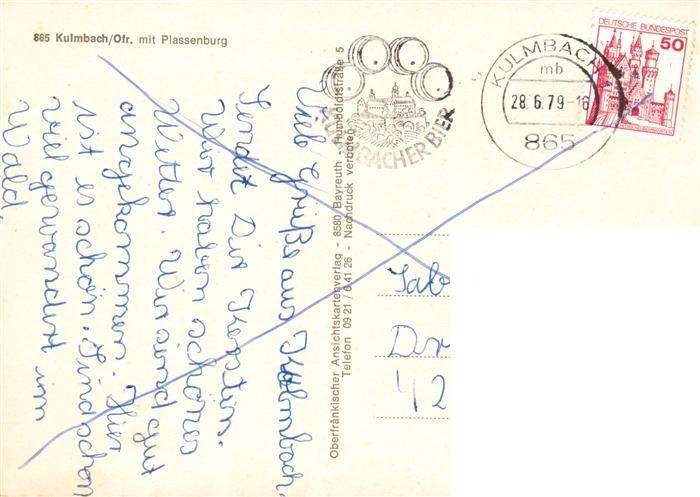 865 Kulmbach/Ofr. mit Plassenburg
Viele Grüße aus Kulmbach.
Sendet Dir Kerstin.
Wir haben schönes
Wetter. Wir sind gut
angekommen. Hier
ist es schön. Sind schon
viel gewandert im
Wald.
Oberfränkischer Ansichtskartenverlag - 8580 Bayreuth - Humboldtstraße 5
Telefon 09 21 / 6 41 26 - Nachdruck verboten
BACHER BIER
KULMBACH
mb
28.6.79-16
865
DEUTSCHE BUNDESPOST
50
Sab
Dr
42